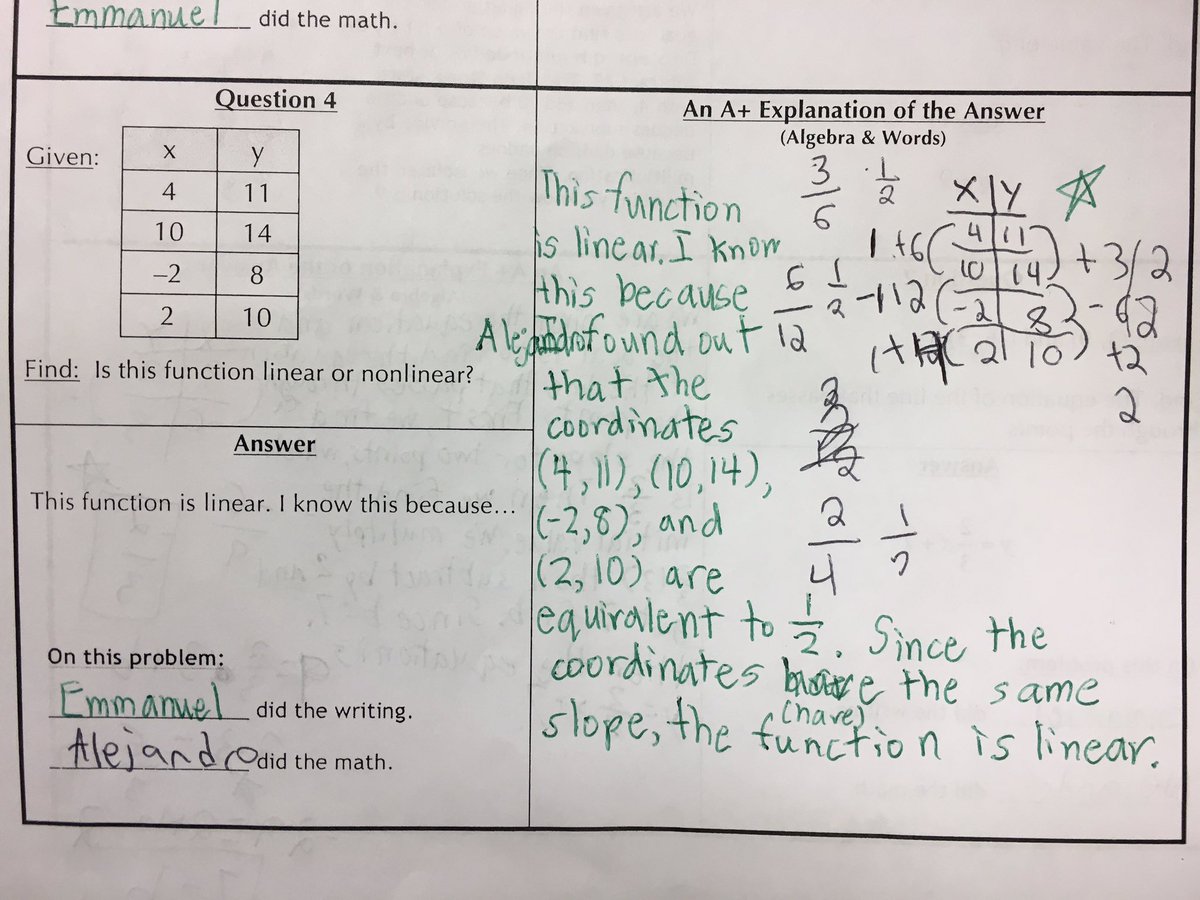 Emmanuel did the math.
Question 4
Given:
x y
4 11
10 14
-2 8
2 10
Find: Is this function linear or nonlinear?
Answer
This function is linear. I know this because...
On this problem:
Emmanuel did the writing.
Alejandro did the math.
An A+ Explanation of the Answer
(Algebra & Words)
This function
is linear. I know
this because
Alejandro found out
that the
coordinates
(4,11), (10,14),
(-2,8), and
(2,10) are
equivalent to 1/2. Since the
coordinates have the same
(have)
slope, the function is linear.
3/6 1/2
x y
4 11
10 14
-2 8
2 10
+6
+3
6/12 1/2
+2
2/4 1/2